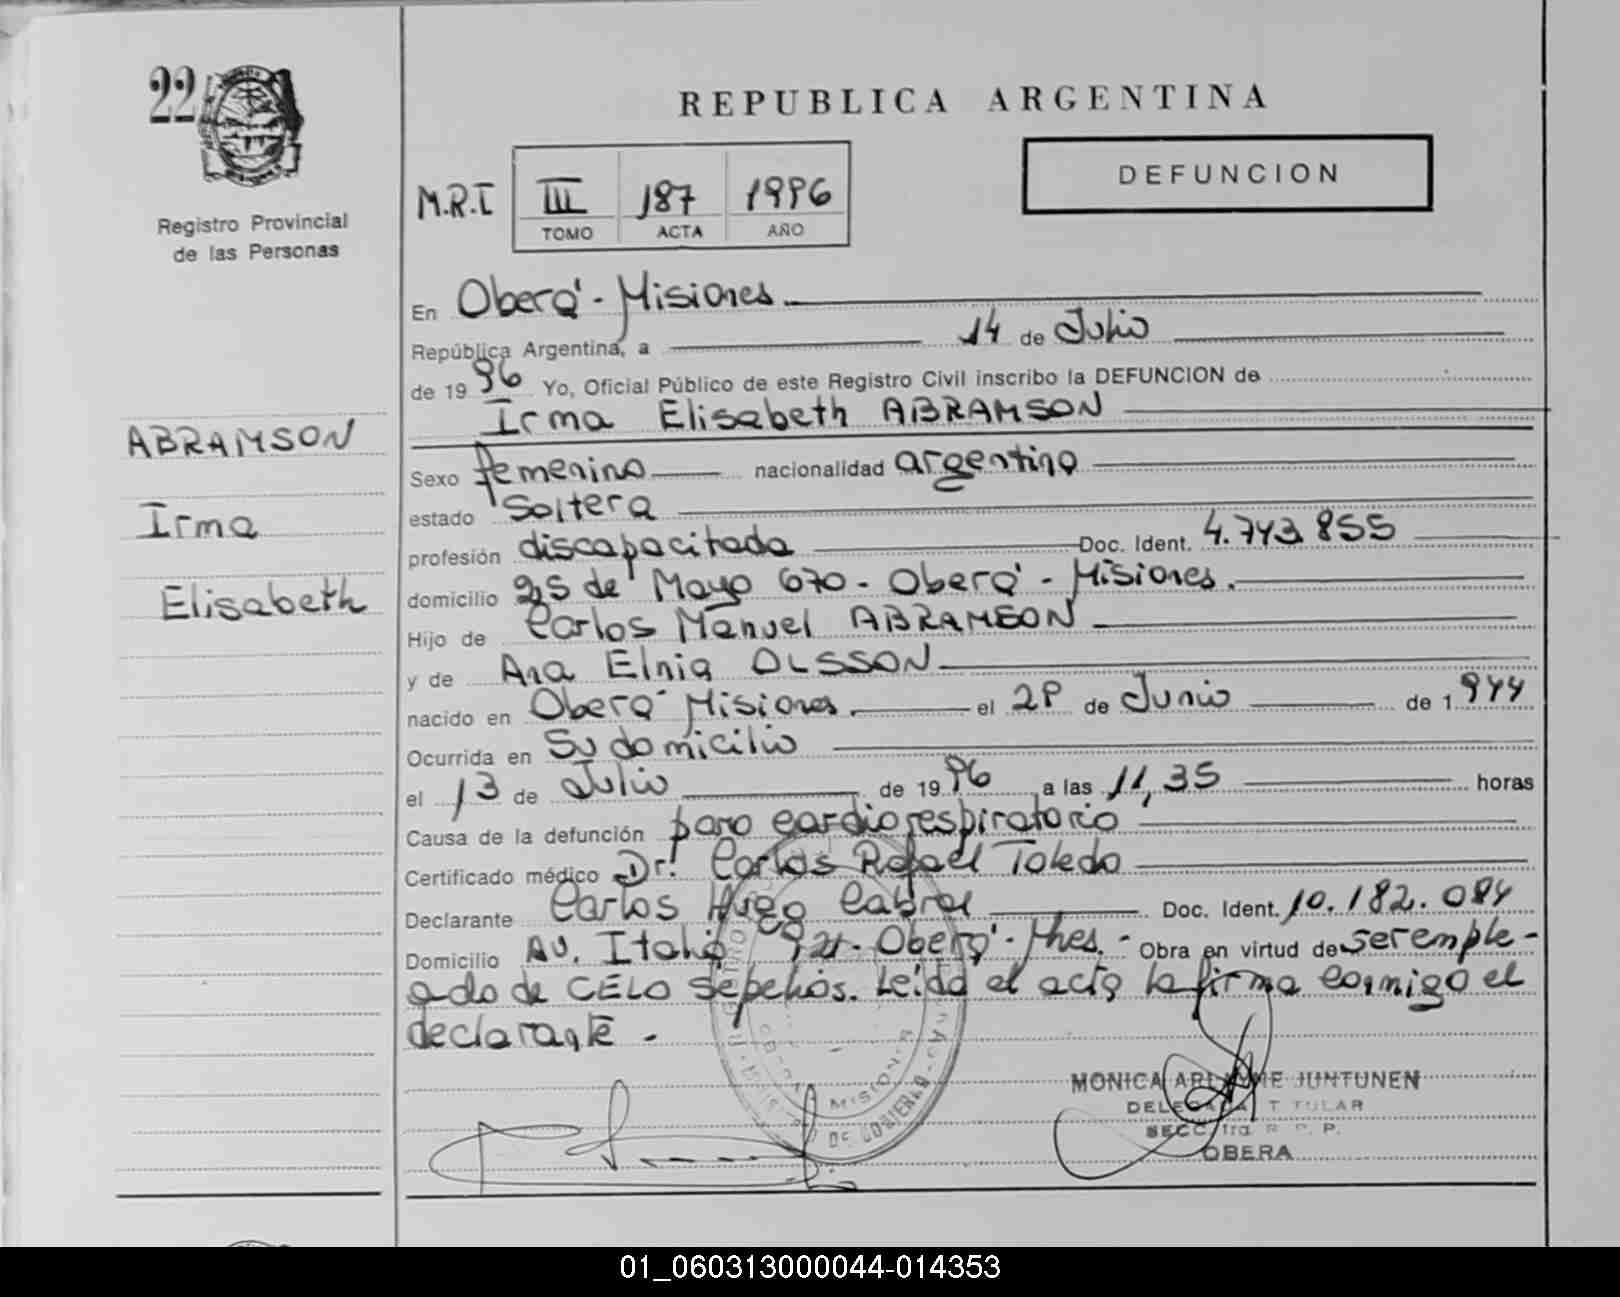 22
Registro Provincial
de las Personas
ABRAMSON
Irma
Elisabeth
REPUBLICA ARGENTINA
DEFUNCION
M.R.I III 187 1996
TOMO ACTA AÑO
En Oberá - Misiones.
República Argentina, a 14 de Julio
de 19 96 Yo, Oficial Público de este Registro Civil inscribo la DEFUNCION de
Irma Elisabeth ABRAMSON
Sexo femenino nacionalidad argentina
estado Soltera
profesión discapacitada Doc. Ident. 4.743.855
domicilio 25 de Mayo 670 - Oberá - Misiones.
Hijo de Carlos Manuel ABRAMSON
y de Ana OLSSON
nacido en Oberá Misiones. el 29 de Junio de 1.944
Ocurrida en Su domicilio
el 13 de Julio de 19 96 a las 11,35 horas
Causa de la defunción paro cardiorespiratorio
Certificado médico Dr. Carlos Rafael Toledo
Declarante Carlos Hugo Cabral Doc. Ident. 10.182.084
Domicilio Av. Italia - Oberá - Mnes. - Obra en virtud de ser emple-
ado de CELO Sepelios. Leída el acta la firma conmigo el
declarante -
MISIONES
DE GOBIERNO
MONICA JUNTUNEN
DELEGADA TITULAR
SECC. 1ra R. P. P.
OBERA
01_060313000044-014353